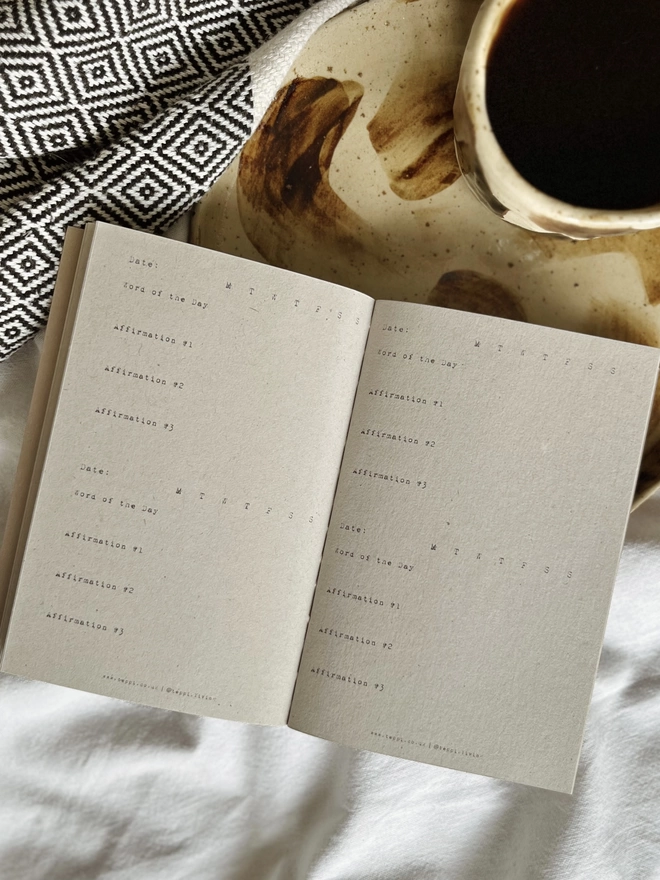 Date:
M T W T F S S
Word of the Day
Affirmation #1
Affirmation #2
Affirmation #3
Date:
M T W T F S S
Word of the Day
Affirmation #1
Affirmation #2
Affirmation #3
Date:
M T W T F S S
Word of the Day
Affirmation #1
Affirmation #2
Affirmation #3
Date:
M T W T F S S
Word of the Day
Affirmation #1
Affirmation #2
Affirmation #3